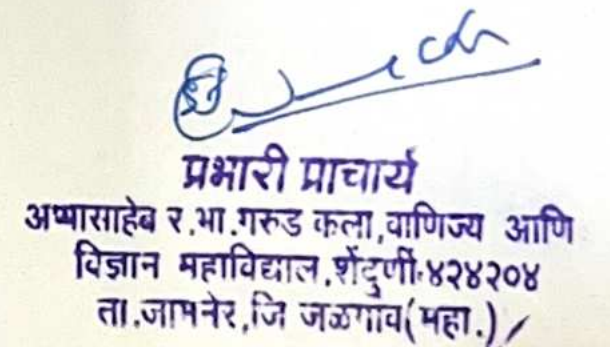 प्रभारी प्राचार्य
अप्पासाहेब र.भा.गरुड कला,वाणिज्य आणि
विज्ञान महाविद्याल,शेंदुर्णी.४२४२०४
ता.जामनेर,जि जळगाव(महा.)